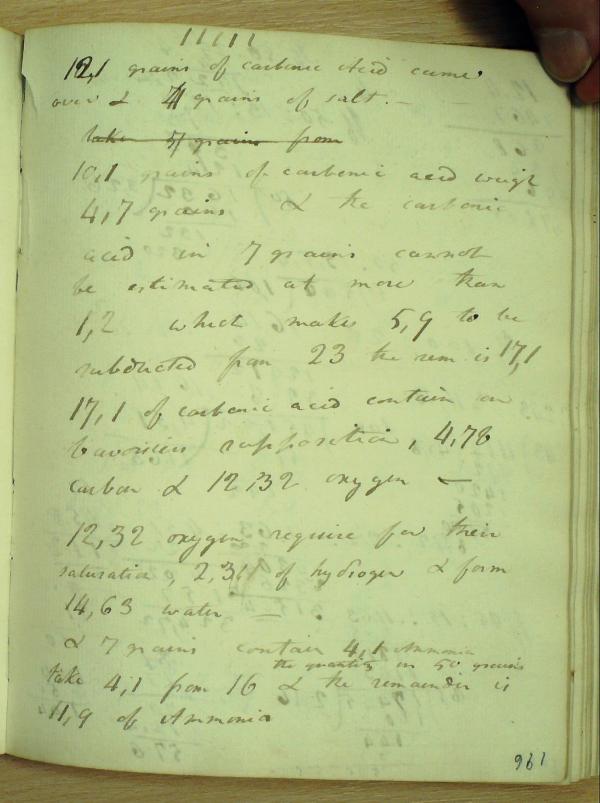 11111
12,1 grains of carbonic Acid came
over & 7 grains of salt. —
taken 5 grains from
10,1 grains of carbonic acid weigh
4,7 grains & the carbonic
acid in 7 grains cannot
be estimated at more than
1,2 which makes 5,9 to be
subducted from 23 the rem is 17,1
17,1 of carbonic acid contain on
Lavoisiers supposition, 4,78
carbon & 12,32 oxygen —
12,32 oxygen require for their
saturation, 2,31 of hydrogen & form
14,63 water —
& 7 grains contain 4,1 Ammonia
the quantity in 50 grains
take 4,1 from 16 & the remainder is
11,9 of Ammonia
961